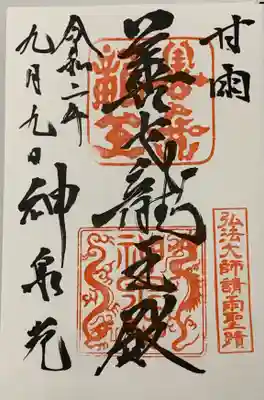 甘雨
弘法大師請雨聖蹟
善女龍王殿
令和二年
九月九日
神泉苑